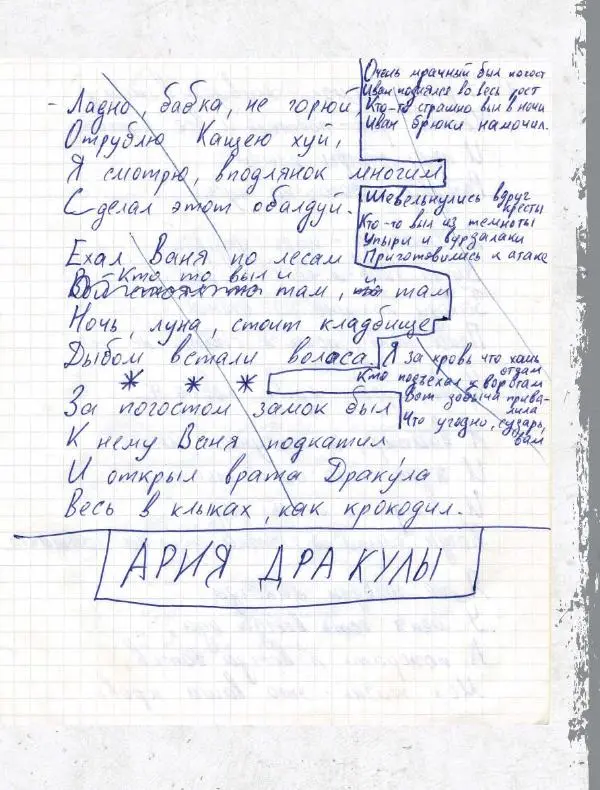 - Ладно, бабка, не горюй,
Отрублю Кащею хуй,
Я смотрю, вподлянок многим
Сделал этот обалдуй.
Очень мрачный был погост
Иван поднялся во весь рост
Кто-то страшно выл в ночи
Иван брюки намочил.
Шевельнулись вдруг
кресты
Кто-то выл из темноты
Упыри и вурдалаки
Приготовились к атаке
Ехал Ваня по лесам
Кто то выл и
там, там
Ночь, луна, стоит кладбище
Дыбом встали воласа.
* * *
Я за кровь что хошь
отдам
Кто подъехал к воротам
Вот добыча прива-
лила
Что угодно, сударь,
вам
За погостом замок был
К нему Ваня подкатил
И открыл врата Дракула
Весь в клыках, как крокодил.
АРИЯ ДРАКУЛЫ